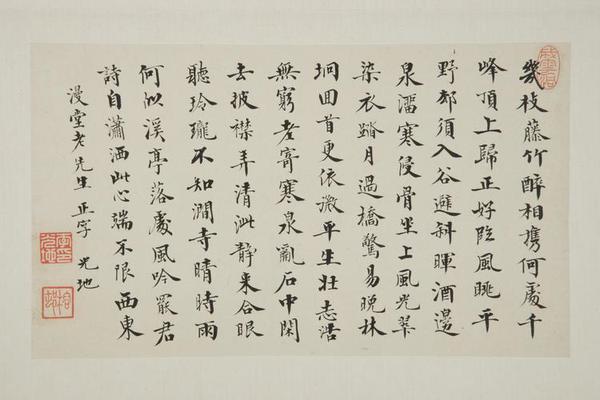 幾枝藤竹醉相携何處千
峰頂上歸正好臨風眺平
野却須入谷避斜暉酒邊
泉溜寒侵骨坐上風光翠
染衣踏月過橋驚易晚林
坰回首更依微平生壯志浩
無窮老寄寒泉亂石中閑
去披襟弄清泚靜來合眼
聽玲瓏不知澗寺晴時雨
何似溪亭落處風吟罷君
詩自瀟洒此心端不限西東
漫堂老先生正字 光地